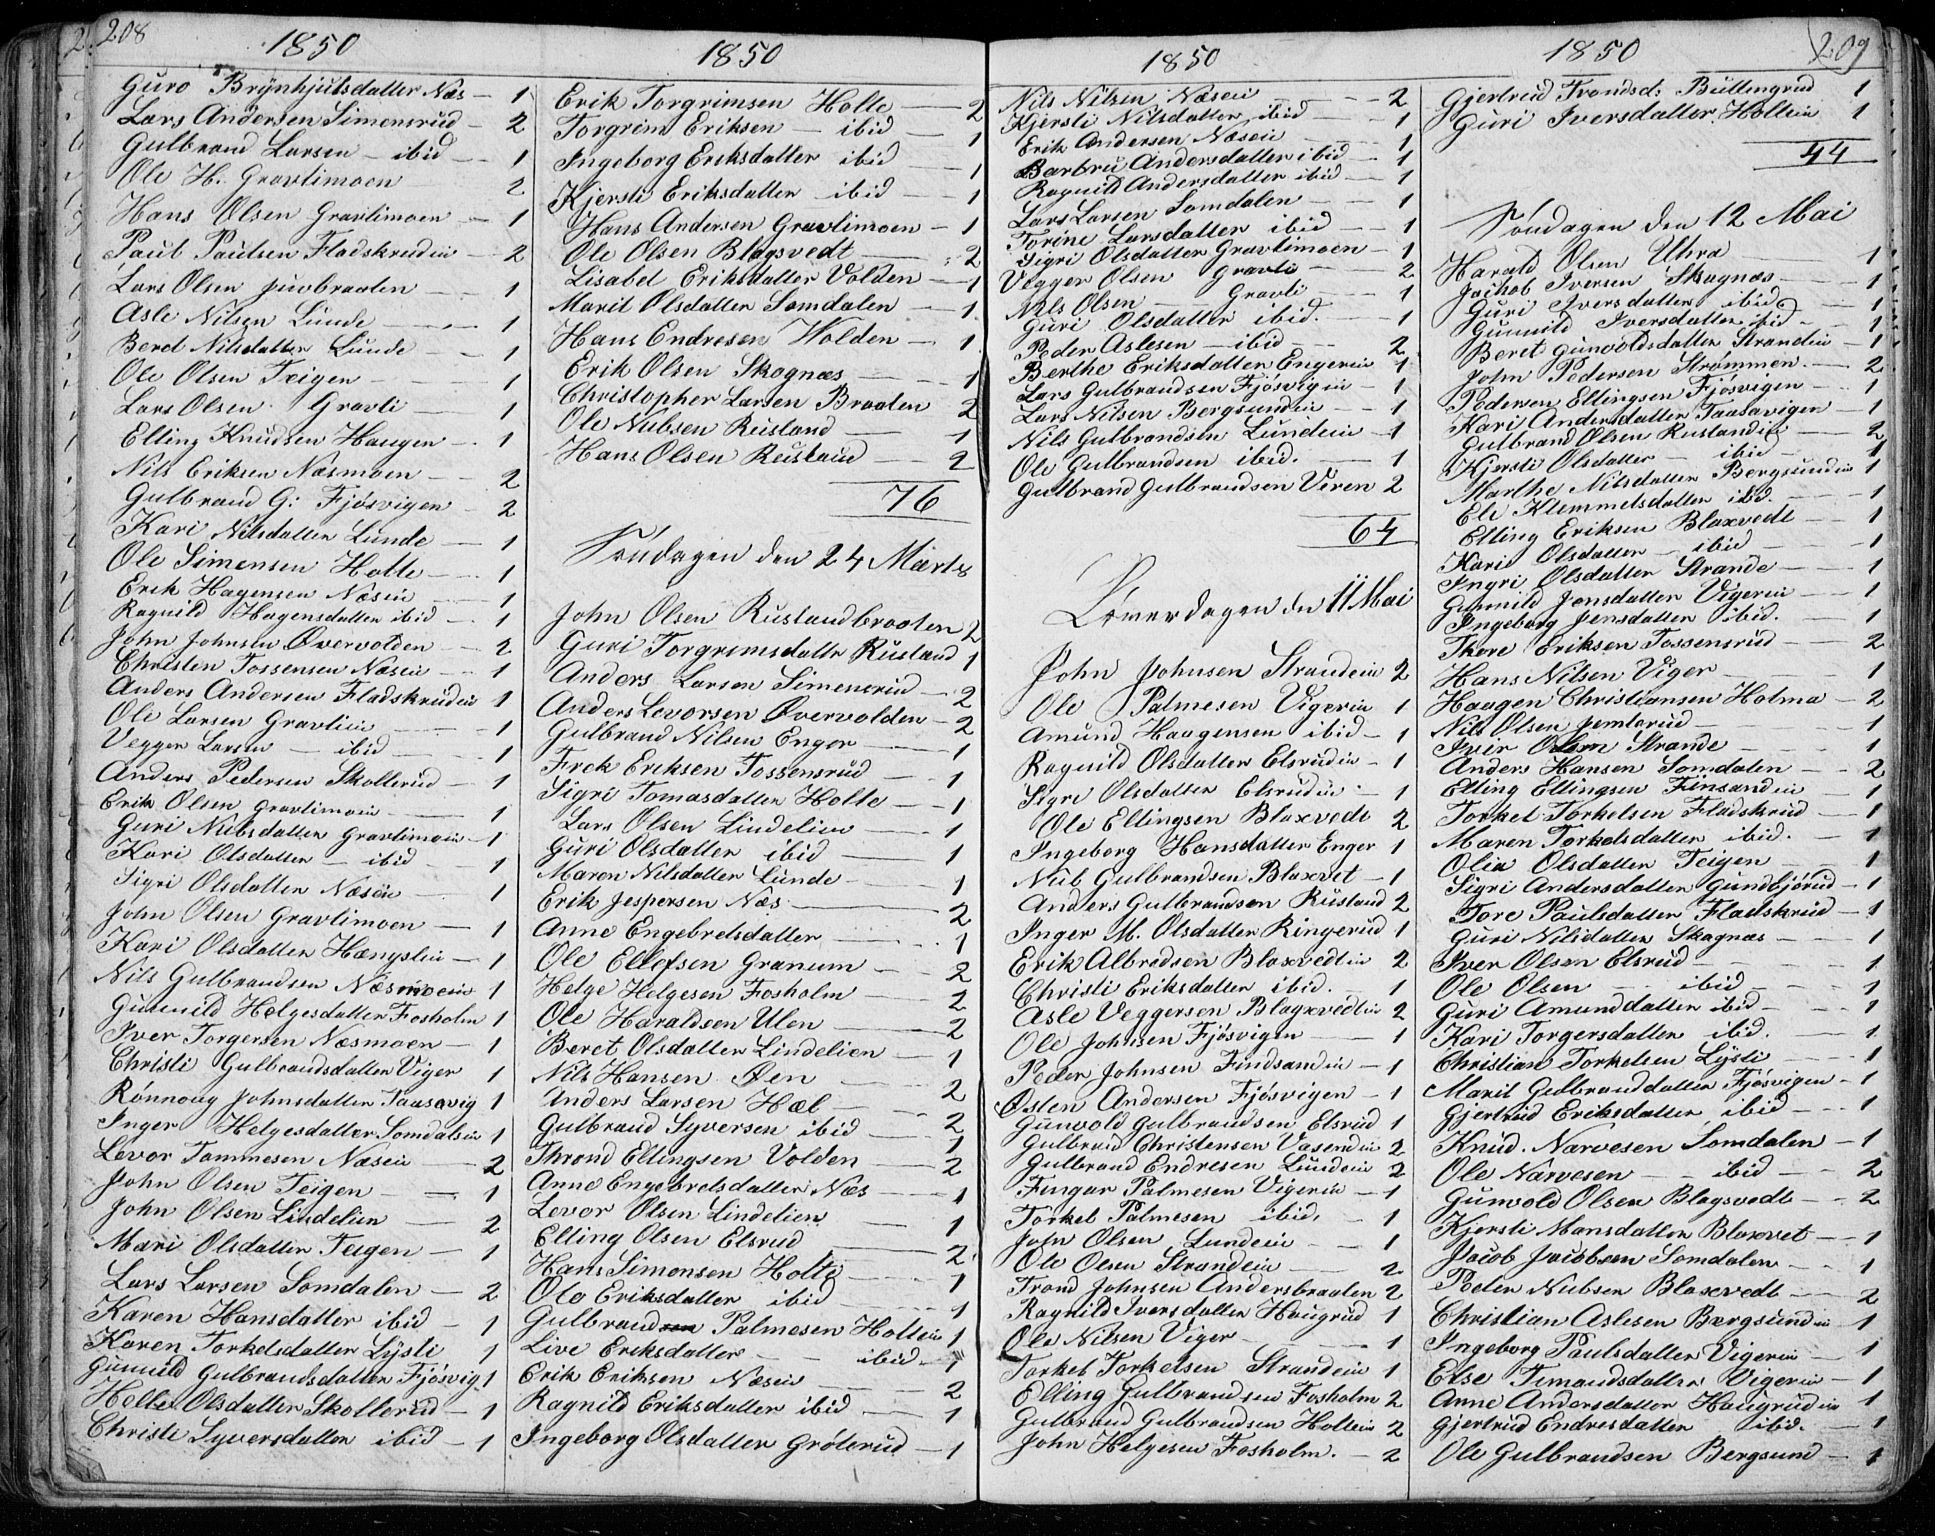 208
1850
Guro Brynhjulsdatter Næs — 1
Lars Andersen Simensrud — 2
Gulbrand Larsen — ibid — 1
Ole H. Gravlimoen 2
Hans Olsen Gravlimoen — 1
Paul Paulsen Fladskrudein — 2
Lars Olsen — 1
Asle Nilsen Lunde — 1
Beret Nilsdatter Lunde — 1
Ole Olsen Teigen — 1
Lars Olsen Gravli — 1
Elling Knudsen Haugen — 1
Nils Eriksen Næsmoen — 2
Gulbrand G: Fjøsvigen — 2
Kari Nilsdatter Lunde — 1
Ole Simensen Holte — 1
Erik Hagensen Næsein — 1
Ragnild Hagensdatter ibid — 1
John Johnsen Øvervolden — 2
Christen Tossensen Næsein — 1
Anders Andersen Fladskrudein 1
Ole Larsen Gravliein — 1
Vegger Larsen — ibid — 1
Anders Pedersen Skollerud — 1
Erik Olsen Gravlimoein — 1
Guri Nubsdatter Gravlimoein — 1
Kari Olsdatter — ibid — 1
Sigri Olsdatter Næsein — 1
John Olsen Gravlimoen — 1
Kari Olsdatter — 1
Nils Gulbrandsen Næsmoein 1
Gunnild Helgesdatter Fosholm 1
Iver Torgersen Næsmoen — 1
Christi Gulbrandsdatter Viger 1
Rønnoug Johnsdatter Taasavig 1
Inger Helgesdatter Somdalein 1
Levor Tommesen Næsein — 2
John Olsen Teigen — 1
John Olsen Lindelien — 2
Mari Olsdatter Teigen — 1
Lars Larsen Somdalen — 2
Karen Hansdatter ibid — 1
Karen Torkelsdatter Lysli 1
Gunnild Gulbrandsdatter Fjøsvig 1
Helle Olsdatter Skollerud — 1
Christi Syversdatter ibid — 1
1850
Erik Torgrimsen Holte — 2
Torgrim Eriksen — ibid — 1
Ingeborg Eriksdatter ibid — 1
Kjersti Eriksdatter ibid — 1
Hans Andersen Gravlimoen — 1
Ole Olsen Blagsvedt — 2
Lisabel Eriksdatter Volden — 1
Marit Olsdatter Somdalen — 1
Hans Endresen Volden — 1
Erik Olsen Skagnæs — 1
Christopher Larsen Braaten 2
Ole Nubsen Reisland — 1
Hans Olsen Reisland — 2
76
Søndagen den 24 Marts
John Olsen Ruslandbraaten 2
Guri Torgrimsdatter Rusland 1
Anders Larsen Simensrud — 2
Anders Levorsen Øvervolden — 2
Gulbrand Nilsen Enger — 1
Frek Eriksen Tossensrud — 1
Sigri Tomasdatter Holte — 1
Lars Olsen Lindelien — 1
Guri Olsdatter ibid — 1
Maren Nilsdatter Lunde — 1
Erik Jespersen Næs — 2
Anne Engebretsdatter — 1
Ole Ellefsen Granum — 2
Helge Helgesen Fosholm — 2
Ole Haraldsen Ulen — 2
Beret Olsdatter Lindelien — 1
Nils Hansen Øen — 2
Anders Larsen Hæl — 2
Gulbrand Syversen ibid — 1
Thrond Ellingsen Volden — 2
Anne Engebretsdatter Næs — 1
Levor Olsen Lindelien — 1
Elling Olsen Elsrud — 2
Hans Simonsen Holte — 1
Ole Eriksdatter ibid — 1
Gulbrand Palmesen Holtein 1
Live Eriksdatter — ibid — 1
Erik Eriksen Næsein — 2
Ragnild Eriksdatter ibid — 1
Ingeborg Olsdatter Grøterud — 1
1850
Nils Nilsen Næsein — 2
Kjersti Nilsdatter ibid — 1
Erik Andersen Næsein — 1
Barbru Andersdatter ibid — 1
Ragnild Andersdatter ibid — 1
Lars Larsen Somdalen — 1
Torine Larsdatter ibid — 1
Sigri Olsdatter Gravlimoen — 1
Vegger Olsen Gravli — 2
Nils Olsen — Gravli — 1
Guri Olsdatter ibid. — 1
Peder Aslesen — ibid — 2
Berthe Eriksdatter Engerein 1
Lars Gulbrandsen Fjøsvigein — 1
Lars Nilsen Bergsundein — 1
Nils Gulbrandsen Lundein — 1
Ole Gulbrandsen ibid. — 1
Gulbrand Gulbrandsen Veren 2
64
Løverdagen den 11 Mai
John Johnsen Strandein 2
Ole Palmesen Vigerein 1
Amund Haagensen ibid — 1
Ragnild Olsdatter Elsrudein — 1
Sigri Olsdatter Elsrudein — 1
Ole Ellingsen Blaxvedt 2
Ingeborg Hansdatter Enger 1
Nub Gulbrandsen Blaxvet — 1
Anders Gulbrandsen Rusland 2
Inger M. Olsdatter Ringerud 1
Erik Albredsen Blaxvedtein 2
Christi Eriksdatter ibid. — 1
Asle Veggersen Blagxvedtein 2
Ole Johnsen Fjøsvigen — 1
Peder Johnsen Findsandein — 1
Østen Andersen Fjøsvigen — 1
Gunvold Gulbrandsen Elsrud 1
Gulbrand Christensen Vasendein 2
Gulbrand Endresen Lundein 2
Fingar Palmesen Vigerein — 1
Torkel Palmesen ibid. — 1
John Olsen Lundein — 1
Ole Olsen Strandein — 2
Trond Johnsen Andersbraaten 2
Ragnild Iversdatter Haugrud 1
Ole Nilsen Viger — 1
Torkel Torkelsen Strandein 1
Elling Gulbrandsen Fosholm 2
Gulbrand Gulbrandsen Holtein 2
John Helgesen Fosholm. — 2
1850
209
Gjertrud Trondsd: Bullingrud 1
Guri Iversdatter Holtein 1
44
Søndagen den 12 Mai
Harald Olsen Uhra 1
Jachob Iversen Skagnæs — 1
Guri Iversdatter ibid — 1
Gunnild Iversdatter ibid — 1
Beret Gunvoldsdatter Strandein — 1
John Pedersen Strømmen — 2
Pedersen Ellingsen Fjøsvigen — 1
Kari Andersdatter Taasavigen — 1
Gulbrand Olsen Ruslandein — 2
Kjersti Olsdatter — ibid — 1
Marthe Nilsdatter Bergsundein 1
Eli Klemmelsdatter ibid. — 1
Elling Eriksen Blaxvedt — 1
Kari Olsdatter — ibid — 1
Ingri Olsdatter Strande — 1
Gunnild Jonsdatter Vigerein — 1
Ingeborg Jensdatter ibid. — 1
Thore Eriksen Tossensrud — 2
Hans Nilsen Viger — 1
Haagen Christiansen Holma — 2
Nils Olsen Jemterud — 1
Iver Olsen Strande — 1
Anders Hansen Somdalen — 2
Elling Ellingsen Finsandein 1
Torkel Torkelsen Fladskrud — 1
Maren Torkelsdatter ibid. — 1
Olia Olsdatter Teigen — 1
Sigri Andersdatter Gundbjørud — 1
Tore Paulsdatter Fladskrud — 1
Guri Nilsdatter Skagnæs — 1
Iver Olsen Elsrud — 1
Ole Olsen — ibid — 1
Guri Amunddatter ibid — 1
Kari Torgersdatter ibid. 1
Christian Torkelsen Lysli — 1
Marit Gulbranddatter Fjøsvigen — 1
Gjertrud Eriksdatter ibid — 1
Knud Narvesen Somdalen — 1
Ole Narvesen — ibid — 2
Gunvold Olsen Blagsvedt — 2
Kjersti Hansdatter Blaxvet — 1
Jacob Jacobsen Somdalen — 1
Peder Nubsen Blaxvedt — 2
Christian Aslesen Bergsundein — 1
Ingeborg Paulsdatter Vigerein — 1
Else Timandsdatter Vigerein — 1
Anne Andersdatter Haugrudein 1
Gjertrud Endresdatter ibid. — 1
Ole Gulbrandsen Bergsund — 1